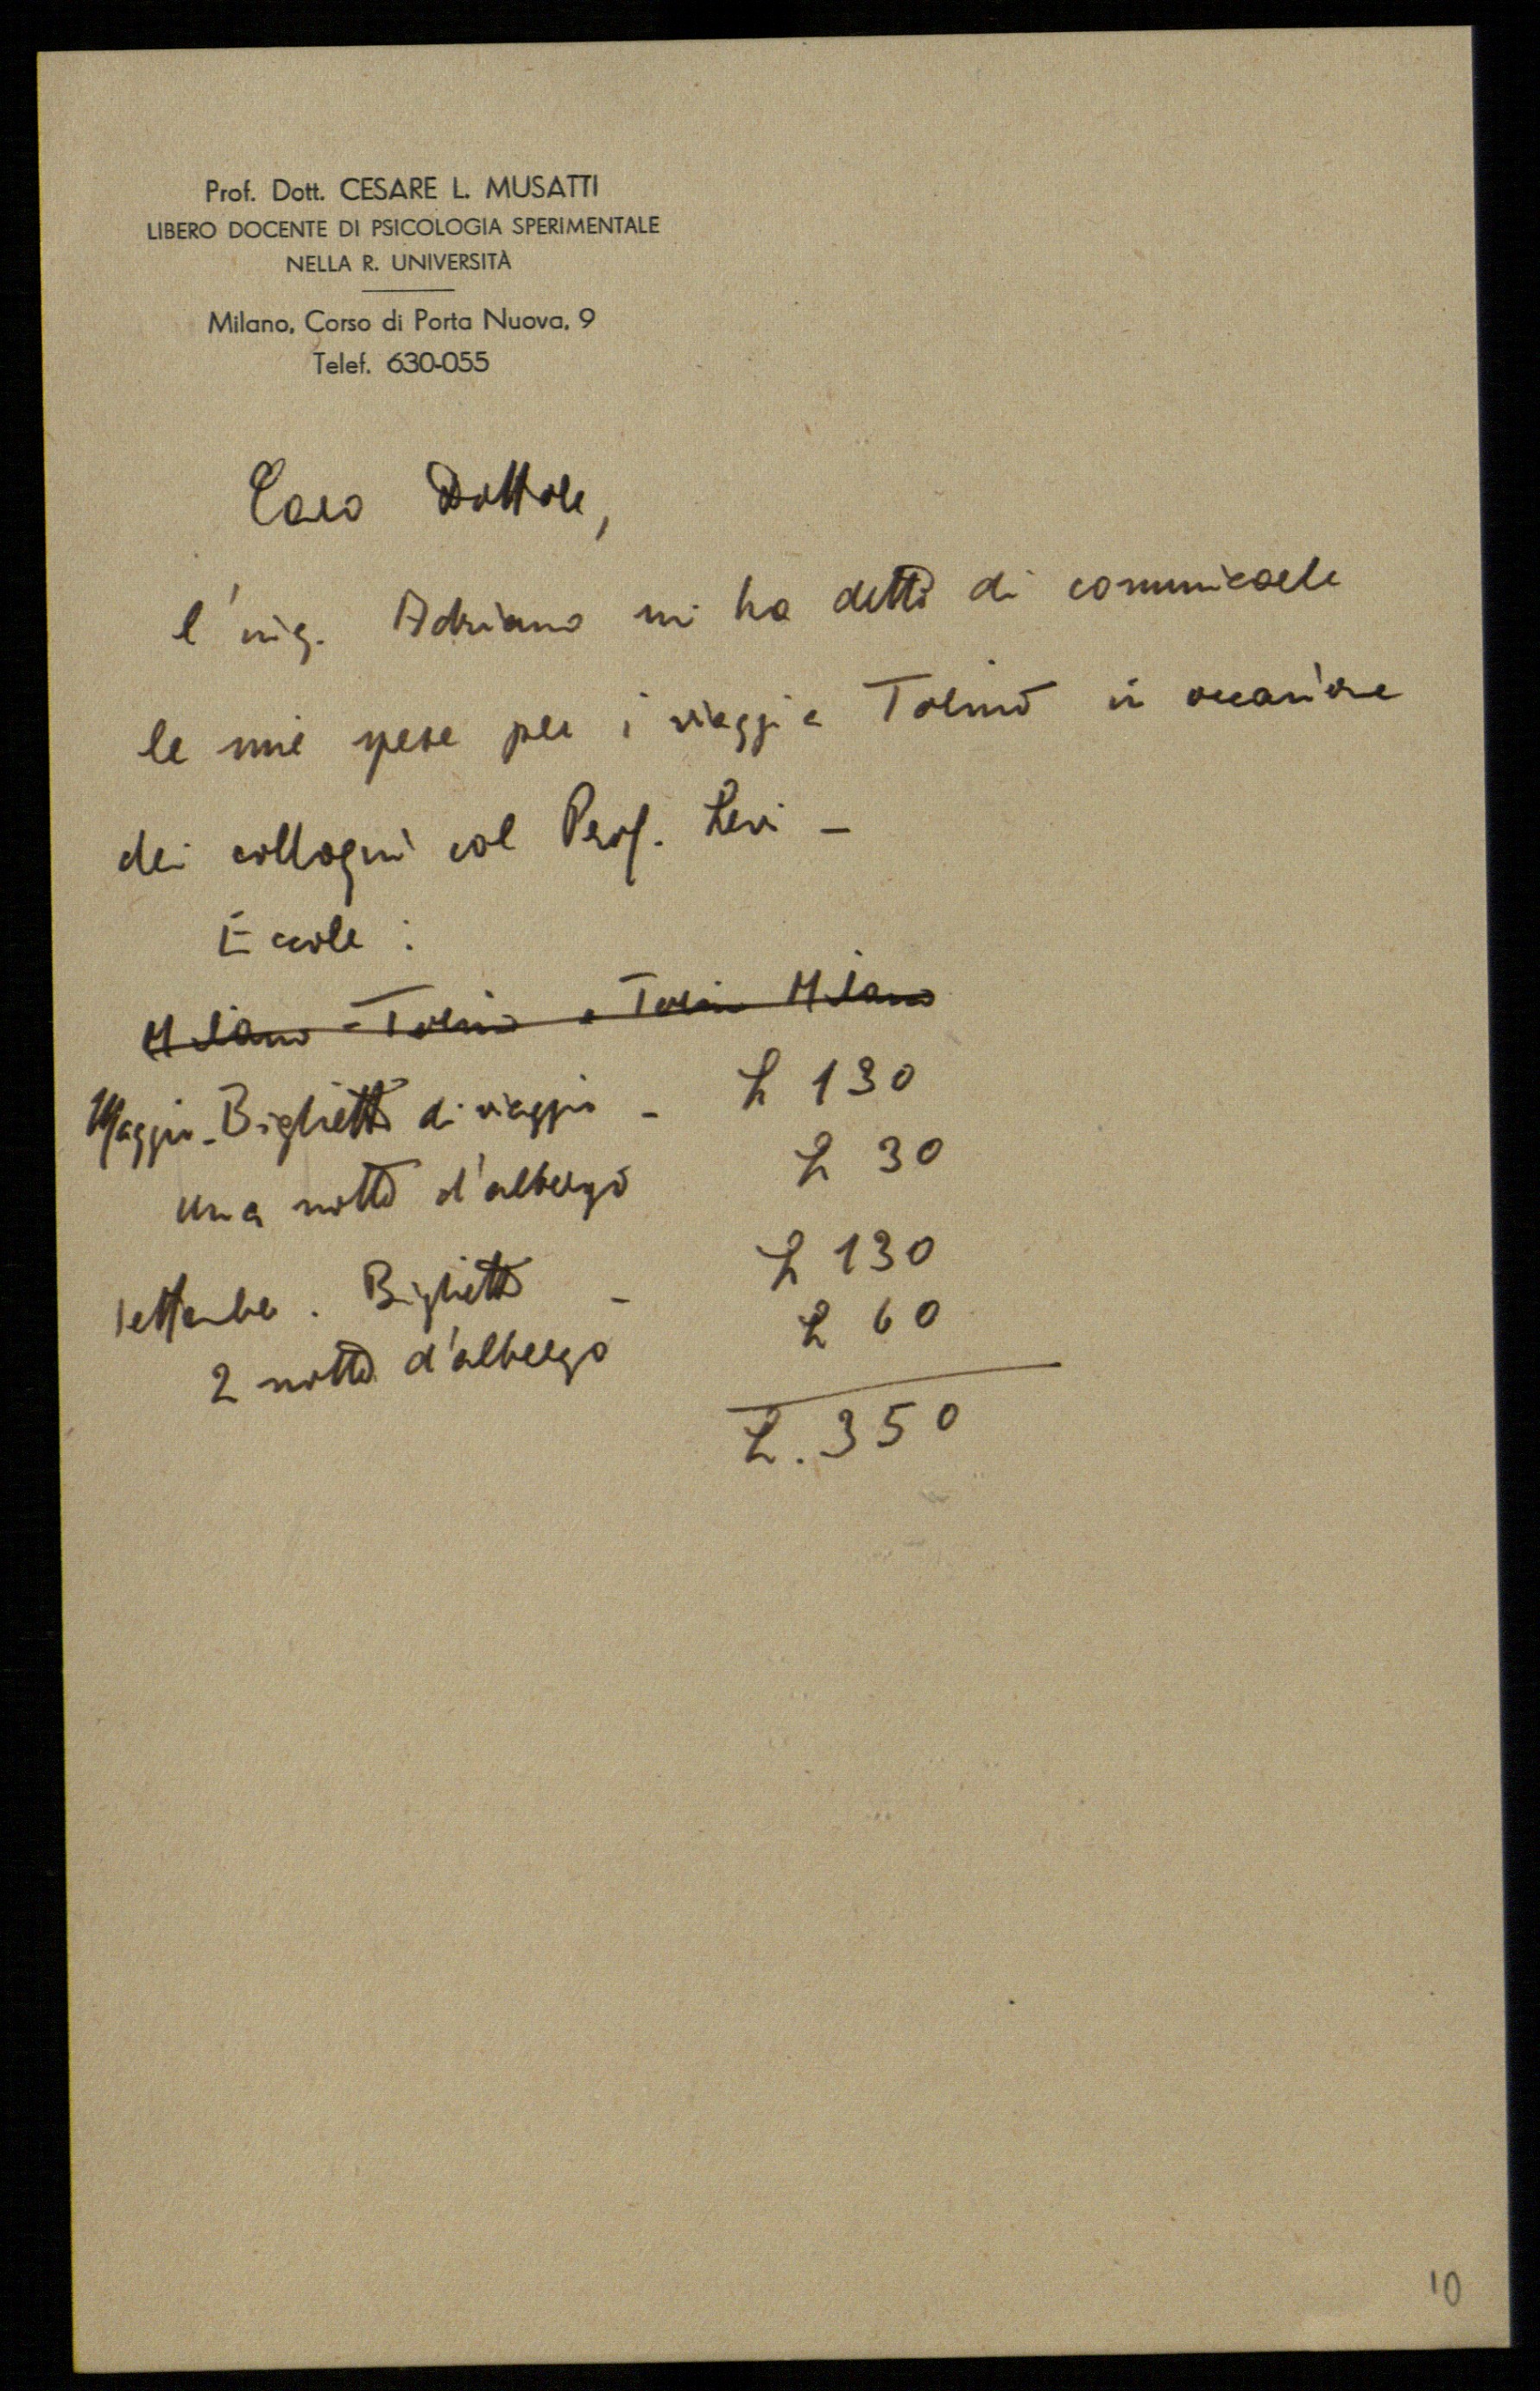 Prof. Dott. CESARE L. MUSATTI
LIBERO DOCENTE DI PSICOLOGIA SPERIMENTALE
NELLA R. UNIVERSITÀ
Milano, Corso di Porta Nuova, 9
Telef. 630-055
Caro Dottore,
l'ing. Adriano mi ha detto di comunicarle
le mie spese per i viaggi a Torino in occasione
dei colloqui col Prof. Levi -
Eccole :
Milano - Torino e Torino Milano
Maggio - Biglietto di viaggio - L 130
una notte d'albergo L 30
Settembre . Biglietto - L 130
2 notti d'albergo L 60
L. 350
10